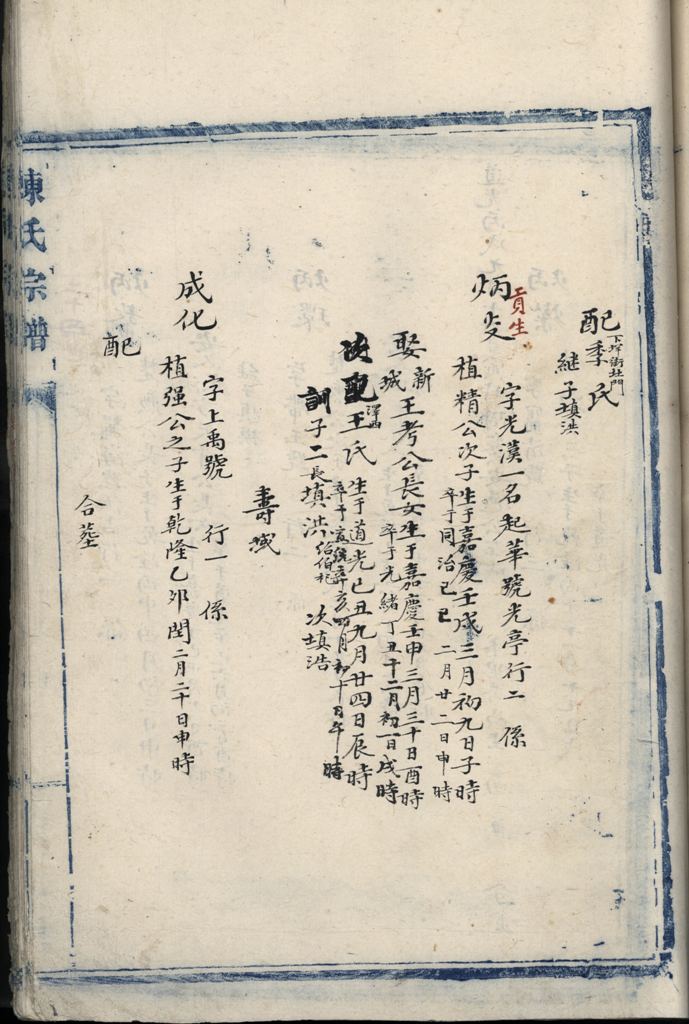 配季氏
下坪街北門
継子填洪
炳奕
貢生
字光漢一名起華號光亭行二 係
植精公次子生于嘉慶壬戌三月初九日子時
卒于同治己巳二月廿二日申時
娶新城王考公長女生于嘉慶壬申三月三十日酉時
卒于光緒丁丑十二月初一日戌時
王氏生于道光己丑九月廿四日辰時
卒于宣統辛亥四月初十日午時
訓子二長填洪 次填浩
壽域
成化
字上禹號 行一 係
植强公之子生于乾隆乙卯閏二月二十日申時
配
合塟
陳氏宗譜